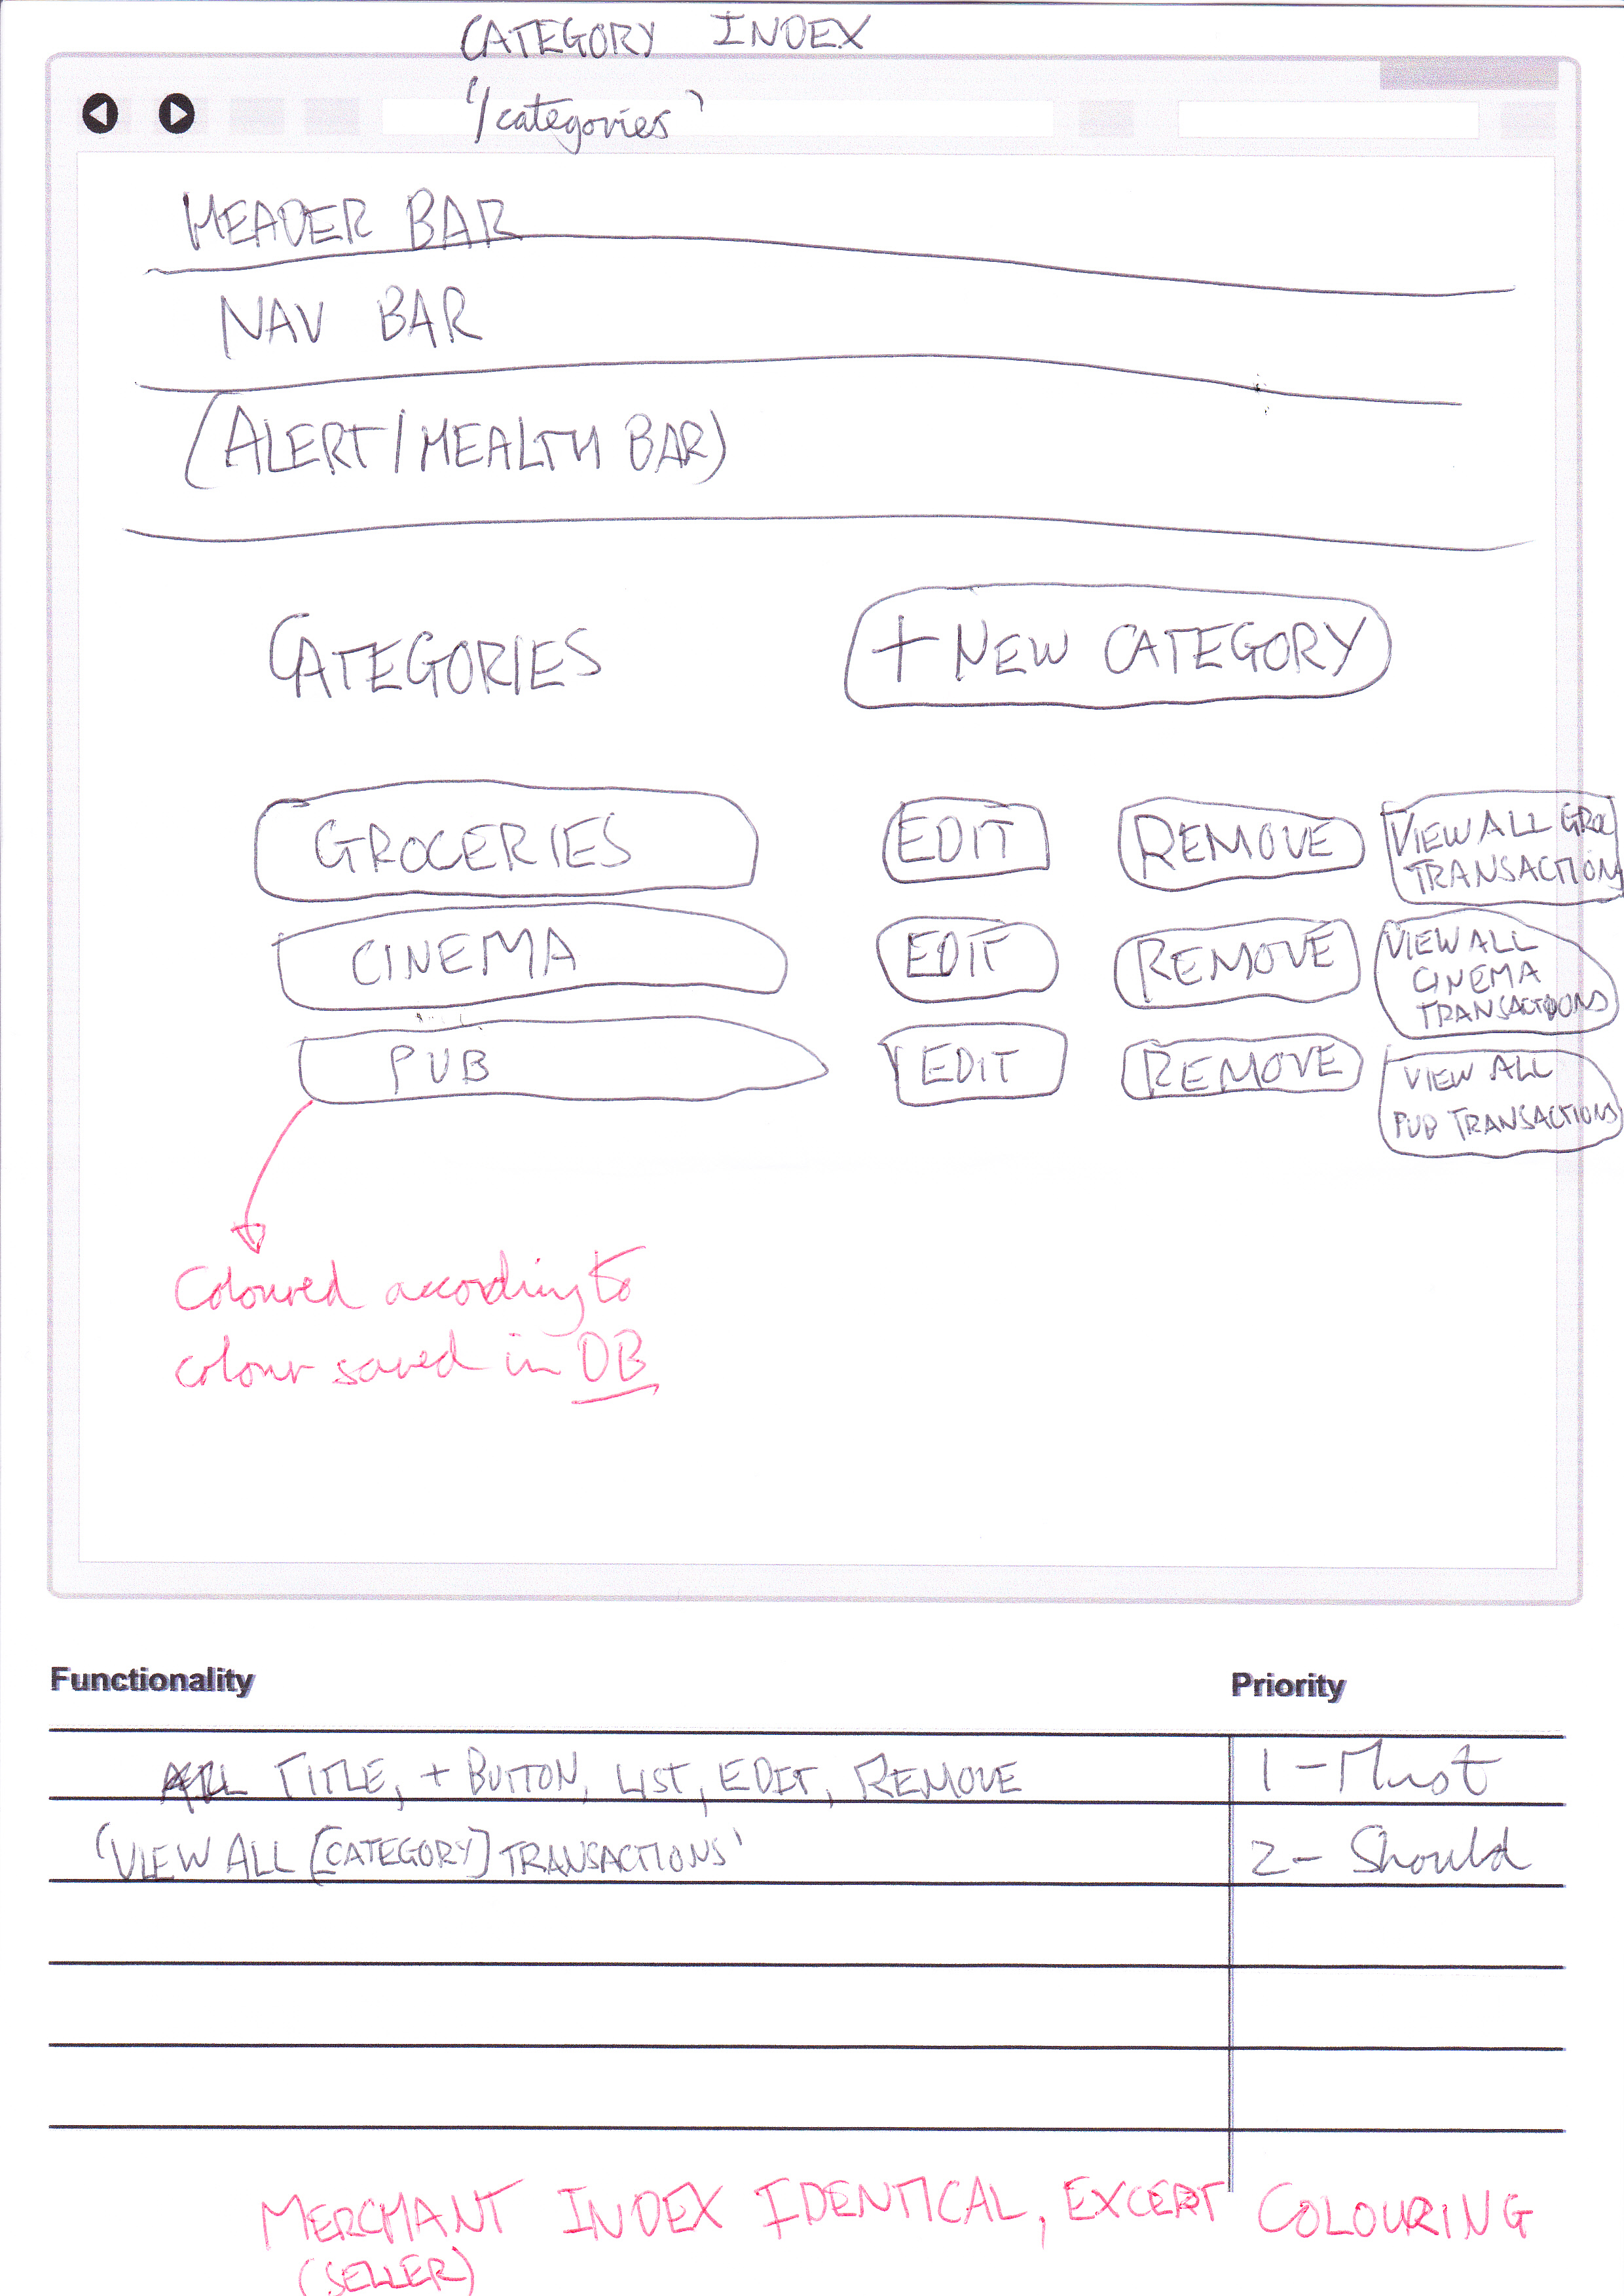 CATEGORY INDEX
'/categories'
HEADER BAR
NAV BAR
(ALERT/HEALTH BAR)
CATEGORIES + NEW CATEGORY
GROCERIES EDIT REMOVE VIEW ALL GROC
TRANSACTIONS
CINEMA EDIT REMOVE VIEW ALL
CINEMA
TRANSACTIONS
PUB EDIT REMOVE VIEW ALL
PUB TRANSACTIONS
Coloured according to
colour saved in DB
Functionality Priority
TITLE, + BUTTON, LIST, EDIT, REMOVE 1 - Must
'VIEW ALL [CATEGORY] TRANSACTIONS' 2 - Should
MERCHANT INDEX IDENTICAL, EXCEPT COLOURING
(SELLER)